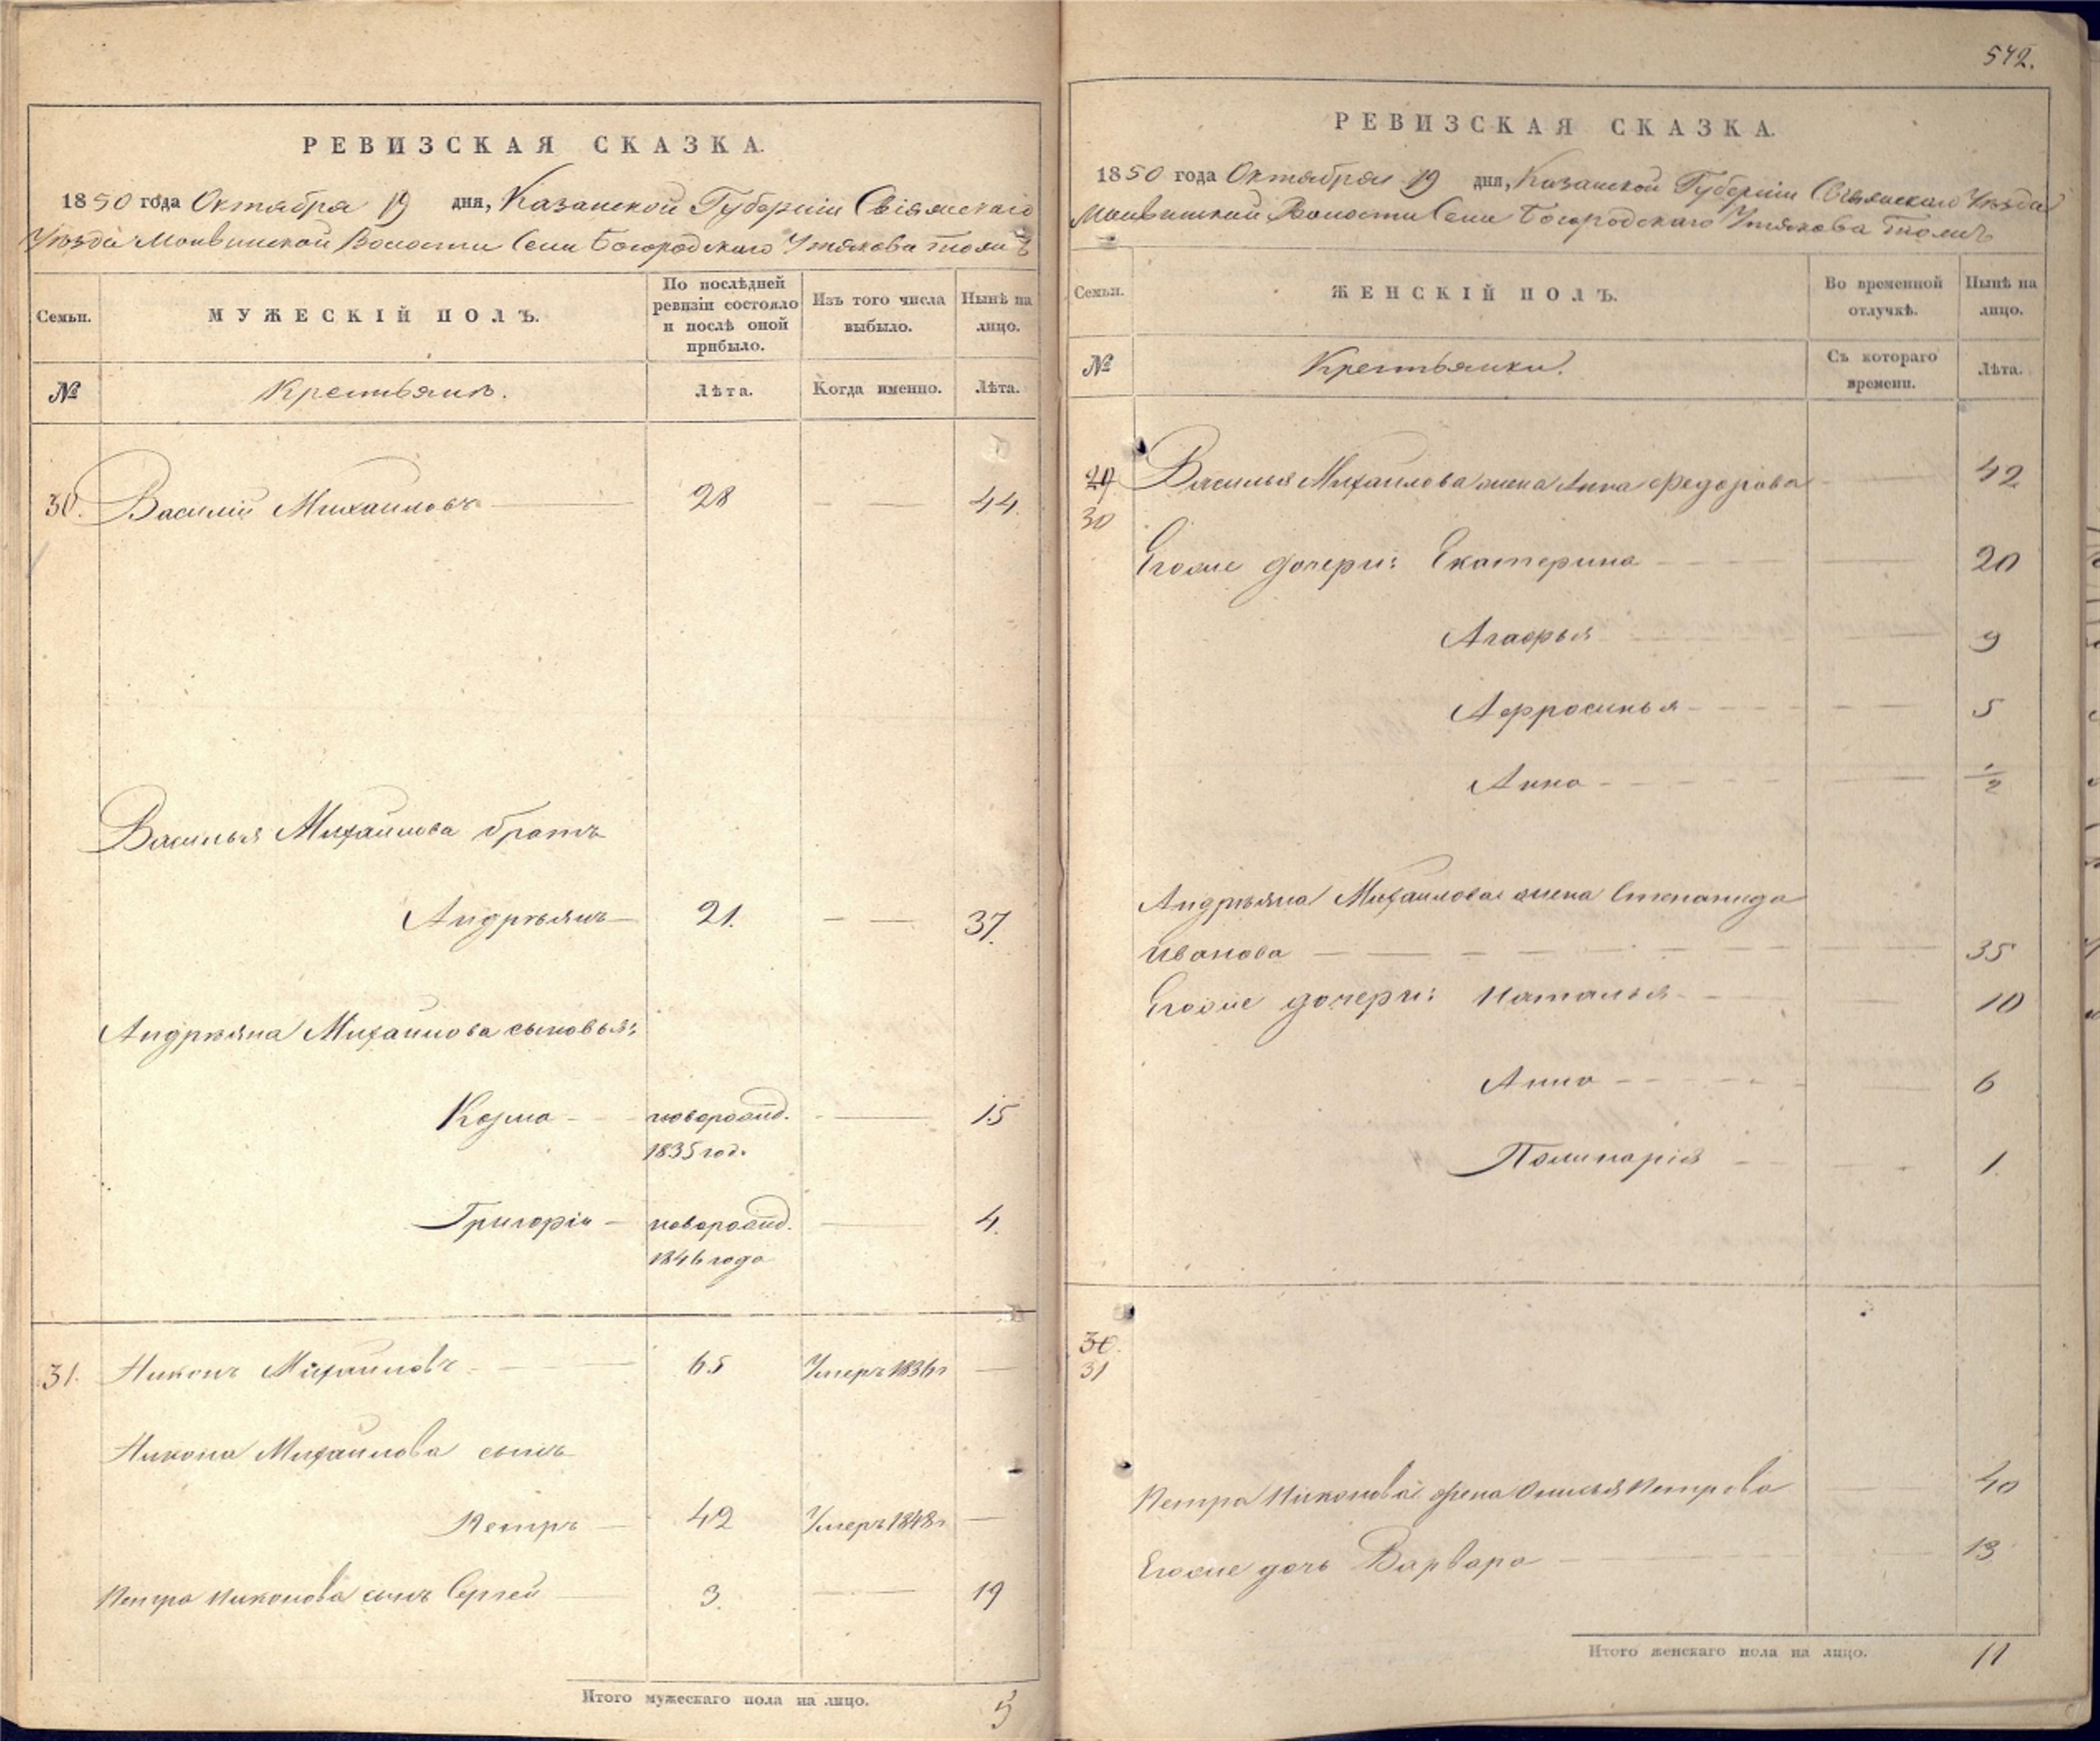 РЕВИЗСКАЯ СКАЗКА.
1850 года Октября 19 дня, Казанской Губернiи Свiяжскаго
Уѣзда Волости Села Богородскаго Утякова тожъ
Семьи.
МУЖЕСКІЙ ПОЛЪ.
По послѣдней
ревизіи состояло
и послѣ оной
прибыло.
Изъ того числа
выбыло.
Нынѣ на
лицо.
№
Крестьянъ.
Лѣта.
Когда именно.
Лѣта.
30. Василiй Михайловъ 28 — — 44
Василья Михайлова братъ
Андрѣянъ 21. — — 37.
Андрѣяна Михайлова сыновья:
Козма — новорожд. — 15
1835 год.
Григорiй — новорожд. — 4.
1846 года
31. Никонъ Михайловъ 65 Умеръ 1836г —
Никона Михайлова сынъ
Петръ — 42 Умеръ 1848г —
Петра Никонова сынъ Сергей 3. — — 19
Итого мужескаго пола на лицо. 5
542.
РЕВИЗСКАЯ СКАЗКА.
1850 года Октября 19 дня, Казанской Губернiи Свiяжскаго Уѣзда
Волости Села Богородскаго Утякова тожъ
Семьи.
ЖЕНСКІЙ ПОЛЪ.
Во временной
отлучкѣ.
Нынѣ на
лицо.
№
Крестьянки.
Съ котораго
времени.
Лѣта.
29 Василья Михайлова жена Анна Федорова — 42
30
Егоже дочери: Екатерина — 20
Агафья — 9
Афросинья — 5
Анна — 1/2
Андрѣяна Михайлова жена Степанида
Иванова — 35
Егоже дочери: Наталья — 10
Анна — 6
Полинарiя — 1.
30.
31
Петра Никонова жена Петрова — 40
Егоже дочь Варвара — 13
Итого женскаго пола на лицо. 11